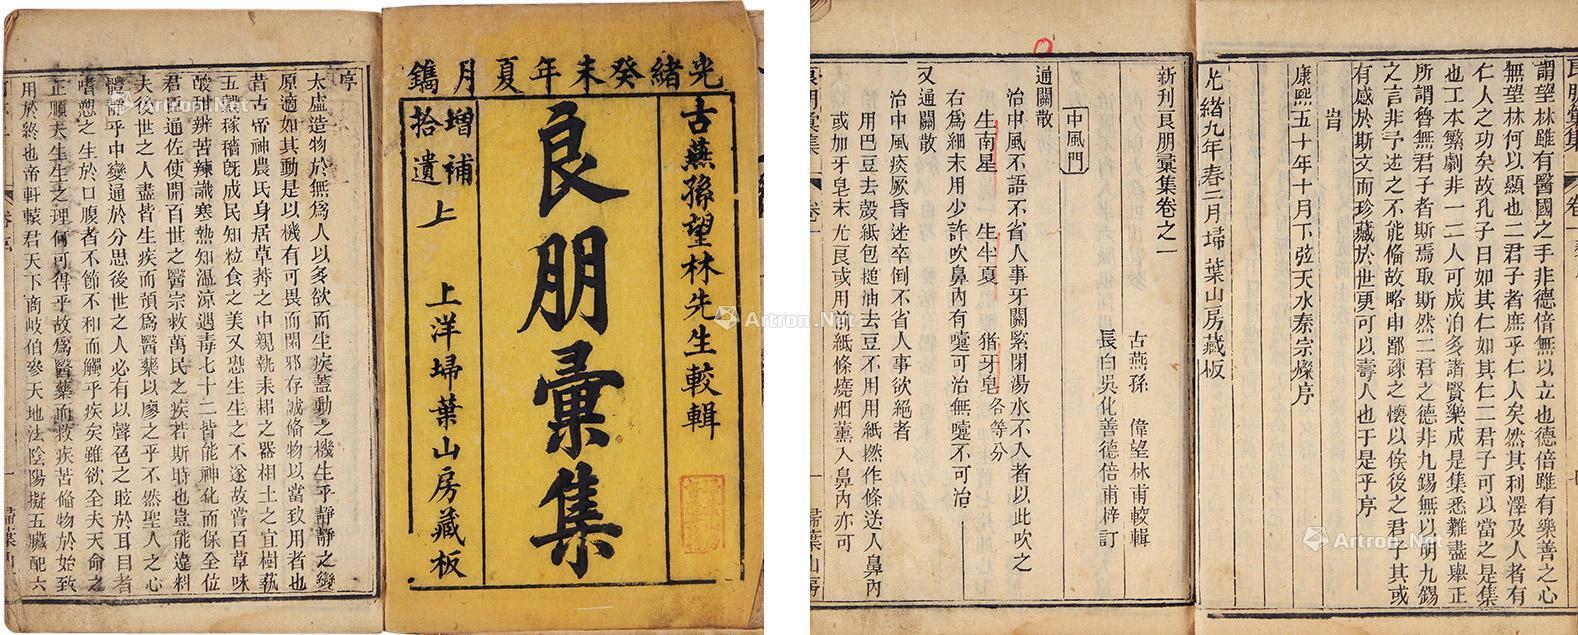 光緒癸未年夏月鐫
古燕孫望林先生較輯
良朋彙集
增補
拾遺上
上洋埽葉山房藏板
序
太虛造物於無爲人以多欲而生疾蓋動之機生乎靜靜之變
原適如其動是以機有可畏而閑邪存誠俻物以當致用者也
昔古帝神農氏身居草莽之中親執耒耜之器相土之宜樹蓺
五穀稼穡旣成民知粒食之美又恐生生之不遂故嘗百草味
酸甜辨苦辣識寒熱知溫涼遇毒七十二皆能神化而保全位
君臣通佐使開百世之醫宗救萬民之疾若斯時也豈能逆料
夫後世之人盡皆生疾而預爲醫藥以廖之乎不然聖人之心
體靜乎中變通於分思後世之人必有以聲色之眩於耳目者
嗜慾之生於口腹者不節不和而觸乎疾矣雖欲全天天命之
正順夫生生之理何可得乎故爲醫藥而救疾苦俻物於始致
用於終也帝軒轅君天下商岐伯參天地法陰陽擬五臟配六
卷序
埽葉山
謂望林雖有醫國之手非德倍無以立也德倍雖有樂善之心
無望林何以顯也二君子者庶乎仁人矣然其利澤及人者有
仁人之功矣故孔子曰如其仁如其仁二君子可以當之是集
也工本繁劇非一二人可成洎多諸賢樂成是集悉難盡舉正
所謂魯無君子者斯焉取斯然二君之德非九錫無以明九錫
之言非予述之不能俻故略申鄙疎之懷以俟後之君子其或
有感於斯文而珍藏於世更可以壽人也于是乎序
旹
康熙五十年十月下弦天水秦宗燦序
光緒九年春二月埽葉山房藏板
新刋良朋彙集卷之一
古燕孫 偉望林甫較輯
長白吳化善德倍甫梓訂
中風門
通關散
治中風不語不省人事牙關緊閉湯水不入者以此吹之
生南星 生半夏 猪牙皂各等分
右爲細末用少許吹鼻內有嚏可治無嚏不可治
又通關散
治中風痰厥昏迷卒倒不省人事欲絕者
用巴豆去殼紙包搥油去豆不用用紙撚作條送入鼻內
或加牙皂末尤良或用前紙條燒烟薰入鼻內亦可
良朋彙集
卷一
埽葉山房
Artron.Net
Artron.Net
Artron.Net
Artron.Net